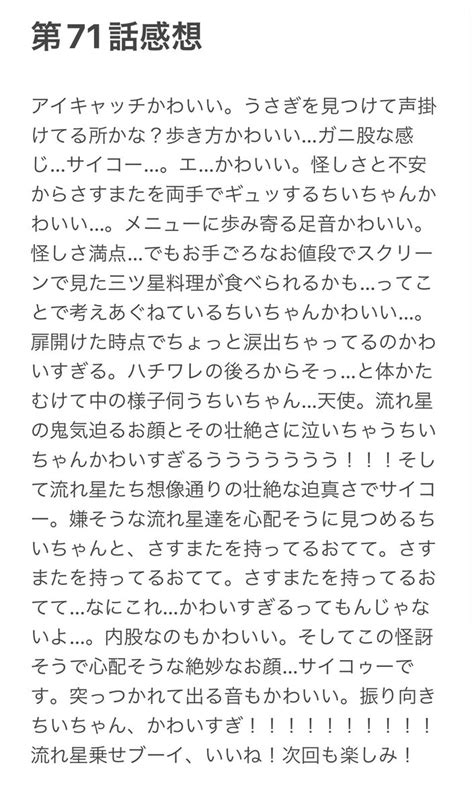 第71話感想
アイキャッチかわいい。うさぎを見つけて声掛
けてる所かな？歩き方かわいい…ガニ股な感
じ…サイコー…。エ…かわいい。怪しさと不安
からさすまたを両手でギュッするちいちゃんか
わいい…。メニューに歩み寄る足音かわいい。
怪しさ満点…でもお手ごろなお値段でスクリー
ンで見た三ツ星料理が食べられるかも…ってこ
とで考えあぐねているちいちゃんかわいい…。
扉開けた時点でちょっと涙出ちゃってるのかわ
いすぎる。ハチワレの後ろからそっ…と体かた
むけて中の様子伺うちいちゃん…天使。流れ星
の鬼気迫るお顔とその壮絶さに泣いちゃうちい
ちゃんかわいすぎるうううううううう！！！そし
て流れ星たち想像通りの壮絶な迫真さでサイコ
ー。嫌そうな流れ星達を心配そうに見つめるち
いちゃんと、さすまたを持ってるおてて。さす
またを持ってるおてて。さすまたを持ってるお
てて…なにこれ…かわいすぎるってもんじゃな
いよ…。内股なのもかわいい。そしてこの怪訝
そうで心配そうな絶妙なお顔…サイコゥーで
す。突っつかれて出る音もかわいい。振り向き
ちいちゃん、かわいすぎ！！！！！！！！！！
流れ星乗せブーイ、いいね！次回も楽しみ！